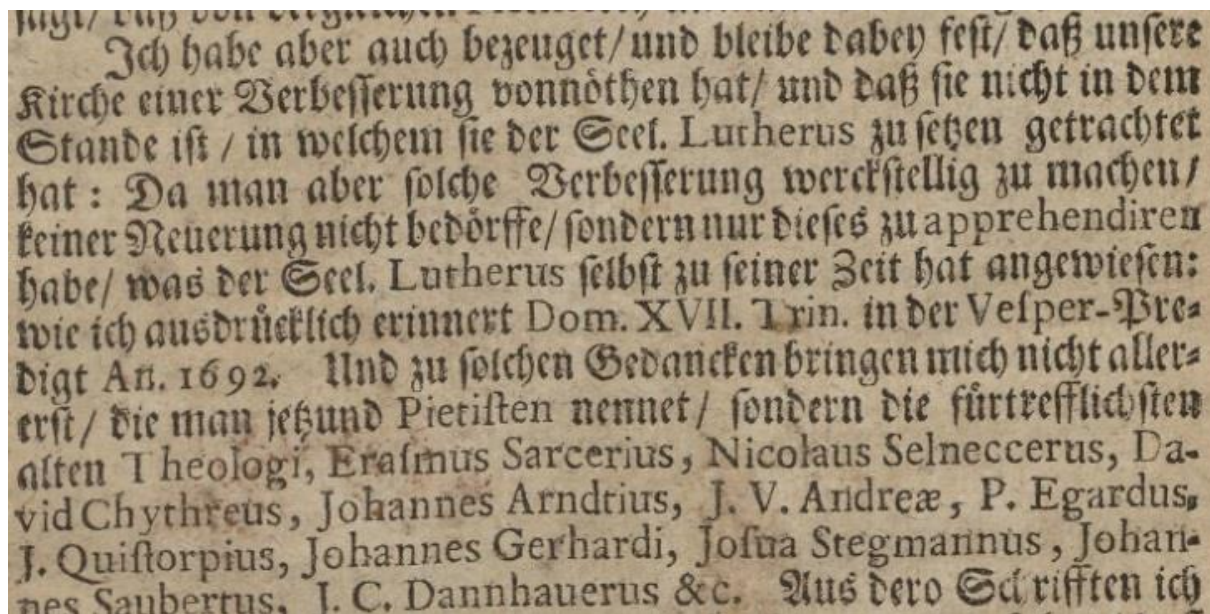 Ich habe aber auch bezeuget/ und bleibe dabey fest/ daß unsere
Kirche einer Verbesserung vonnöthen hat/ und daß sie nicht in dem
Stande ist / in welchem sie der Seel. Lutherus zu setzen getrachtet
hat: Da man aber solche Verbesserung werckstellig zu machen/
keiner Neuerung nicht bedörffe/ sondern nur dieses zu apprehendiren
habe/ was der Seel. Lutherus selbst zu seiner Zeit hat angewiesen:
wie ich ausdrücklich erinnert Dom. XVII. Trin. in der Vesper-Pre-
digt An. 1692. Und zu solchen Gedancken bringen mich nicht aller-
erst/ die man jetzund Pietisten nennet/ sondern die fürtrefflichsten
alten Theologi, Erasmus Sarcerius, Nicolaus Selneccerus, Da-
vid Chythreus, Johannes Arndtius, J. V. Andreæ, P. Egardus,
J. Quistorpius, Johannes Gerhardi, Josua Stegmannus, Johan-
nes Saubertus, J. C. Dannhauerus &c. Aus dero Schrifften ich